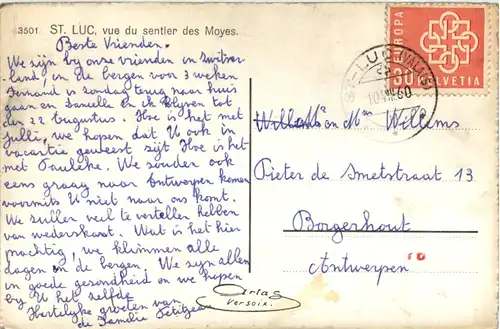 3501 ST. LUC, vue du sentier des Moyes.
Beste Vrienden.
We zijn bij onze vrienden in Zwitser-
land, in de bergen voor 3 weken
Fernand is zondag terug naar huis
gaan en Danielle en ik blyven tot
den 22 augustus. Hoe is het met
julli, we hopen dat U ook in
vacantie geweest zijt Hoe is het
met Pauleke. We zouden ook
eens graag naar Antwerpen komen
voormits U niet naar ons komt.
We zullen veel te vertellen hebben
van wederskant. Wat is het hier
prachtig, we klimmen alle
dagen in de bergen. We zijn allen
in goede gezondheid en we hopen
bij U het zelfde
Hartelijke groeten van
de familie Petitjean
EUROPA
30 HELVETIA
ST-LUC (VALAIS)
10.VIII.60
Mr en Mme Willems
Pieter de Smetstraat 13
Borgerhout
Antwerpen
10
Artas
Versoix.